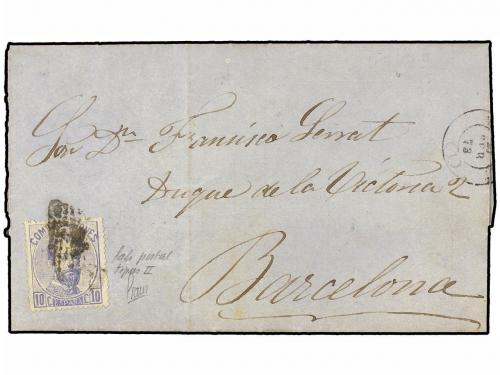 Sor Dn Francisco Serrat
Duque de la Victoria 2
Barcelona
COMUNICACIONES
10 C. 10
falso postal
tipo II